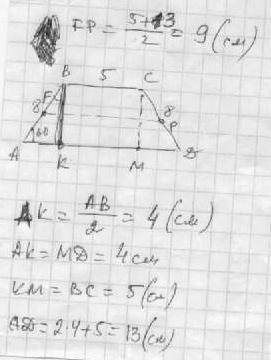 FP = 5+13/2 = 9 (см)
B 5 C
8 F 8 P
60
A K M D
AK = AB/2 = 4 (см)
AK = MD = 4 см
KM = BC = 5 (см)
AD = 2·4+5 = 13 (см)